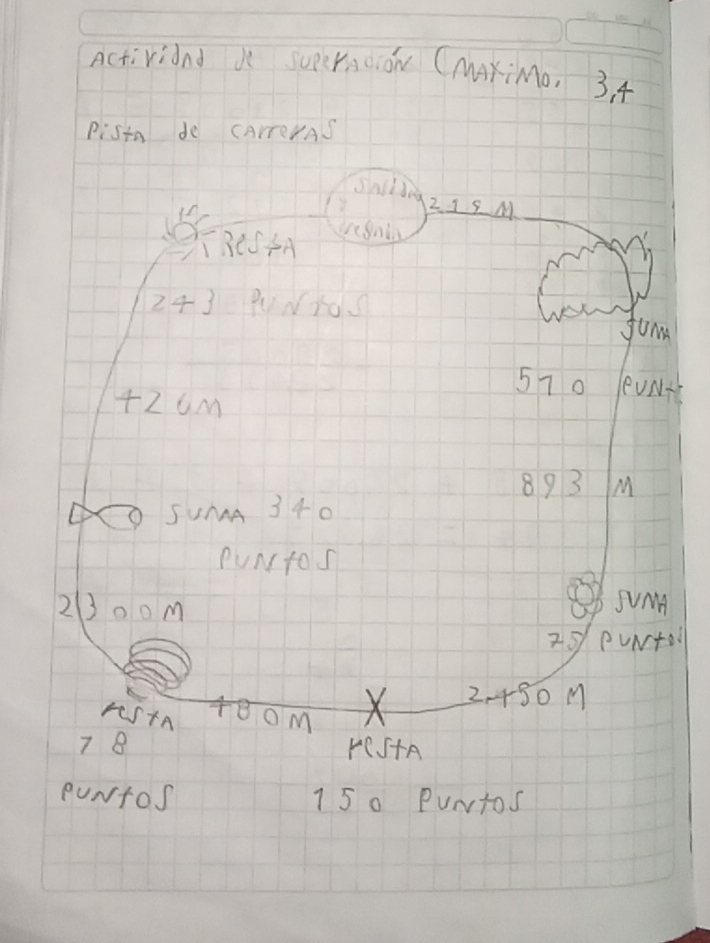 Actividad de superación (MAXIMO, 3,4
Pista de carreras
salida
219 M
RESTA
243 PUNTOS
SUMA
510 PUNT
426M
893 M
SUMA 340
PUNTOS
2300M
SUMA
75 PUNTOS
2.450 M
resta
480M
resta
78
PUNTOS
150 PUNTOS